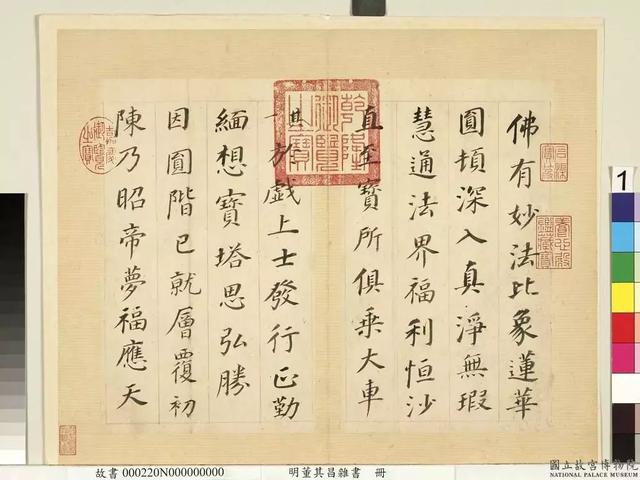 佛有妙法比象蓮華
圓頓深入真淨無瑕
慧通法界福利恒沙
直至寶所俱乘大車
其於戲上士發行正勤
緬想寶塔思弘勝
因圓階已就層覆初
陳乃昭帝夢福應天
乾隆御覽之寶
嘉慶御覽之寶
養心殿鑑藏寶
1
故書 000220N000000000
明董其昌雜書 冊
國立故宮博物院
NATIONAL PALACE MUSEUM